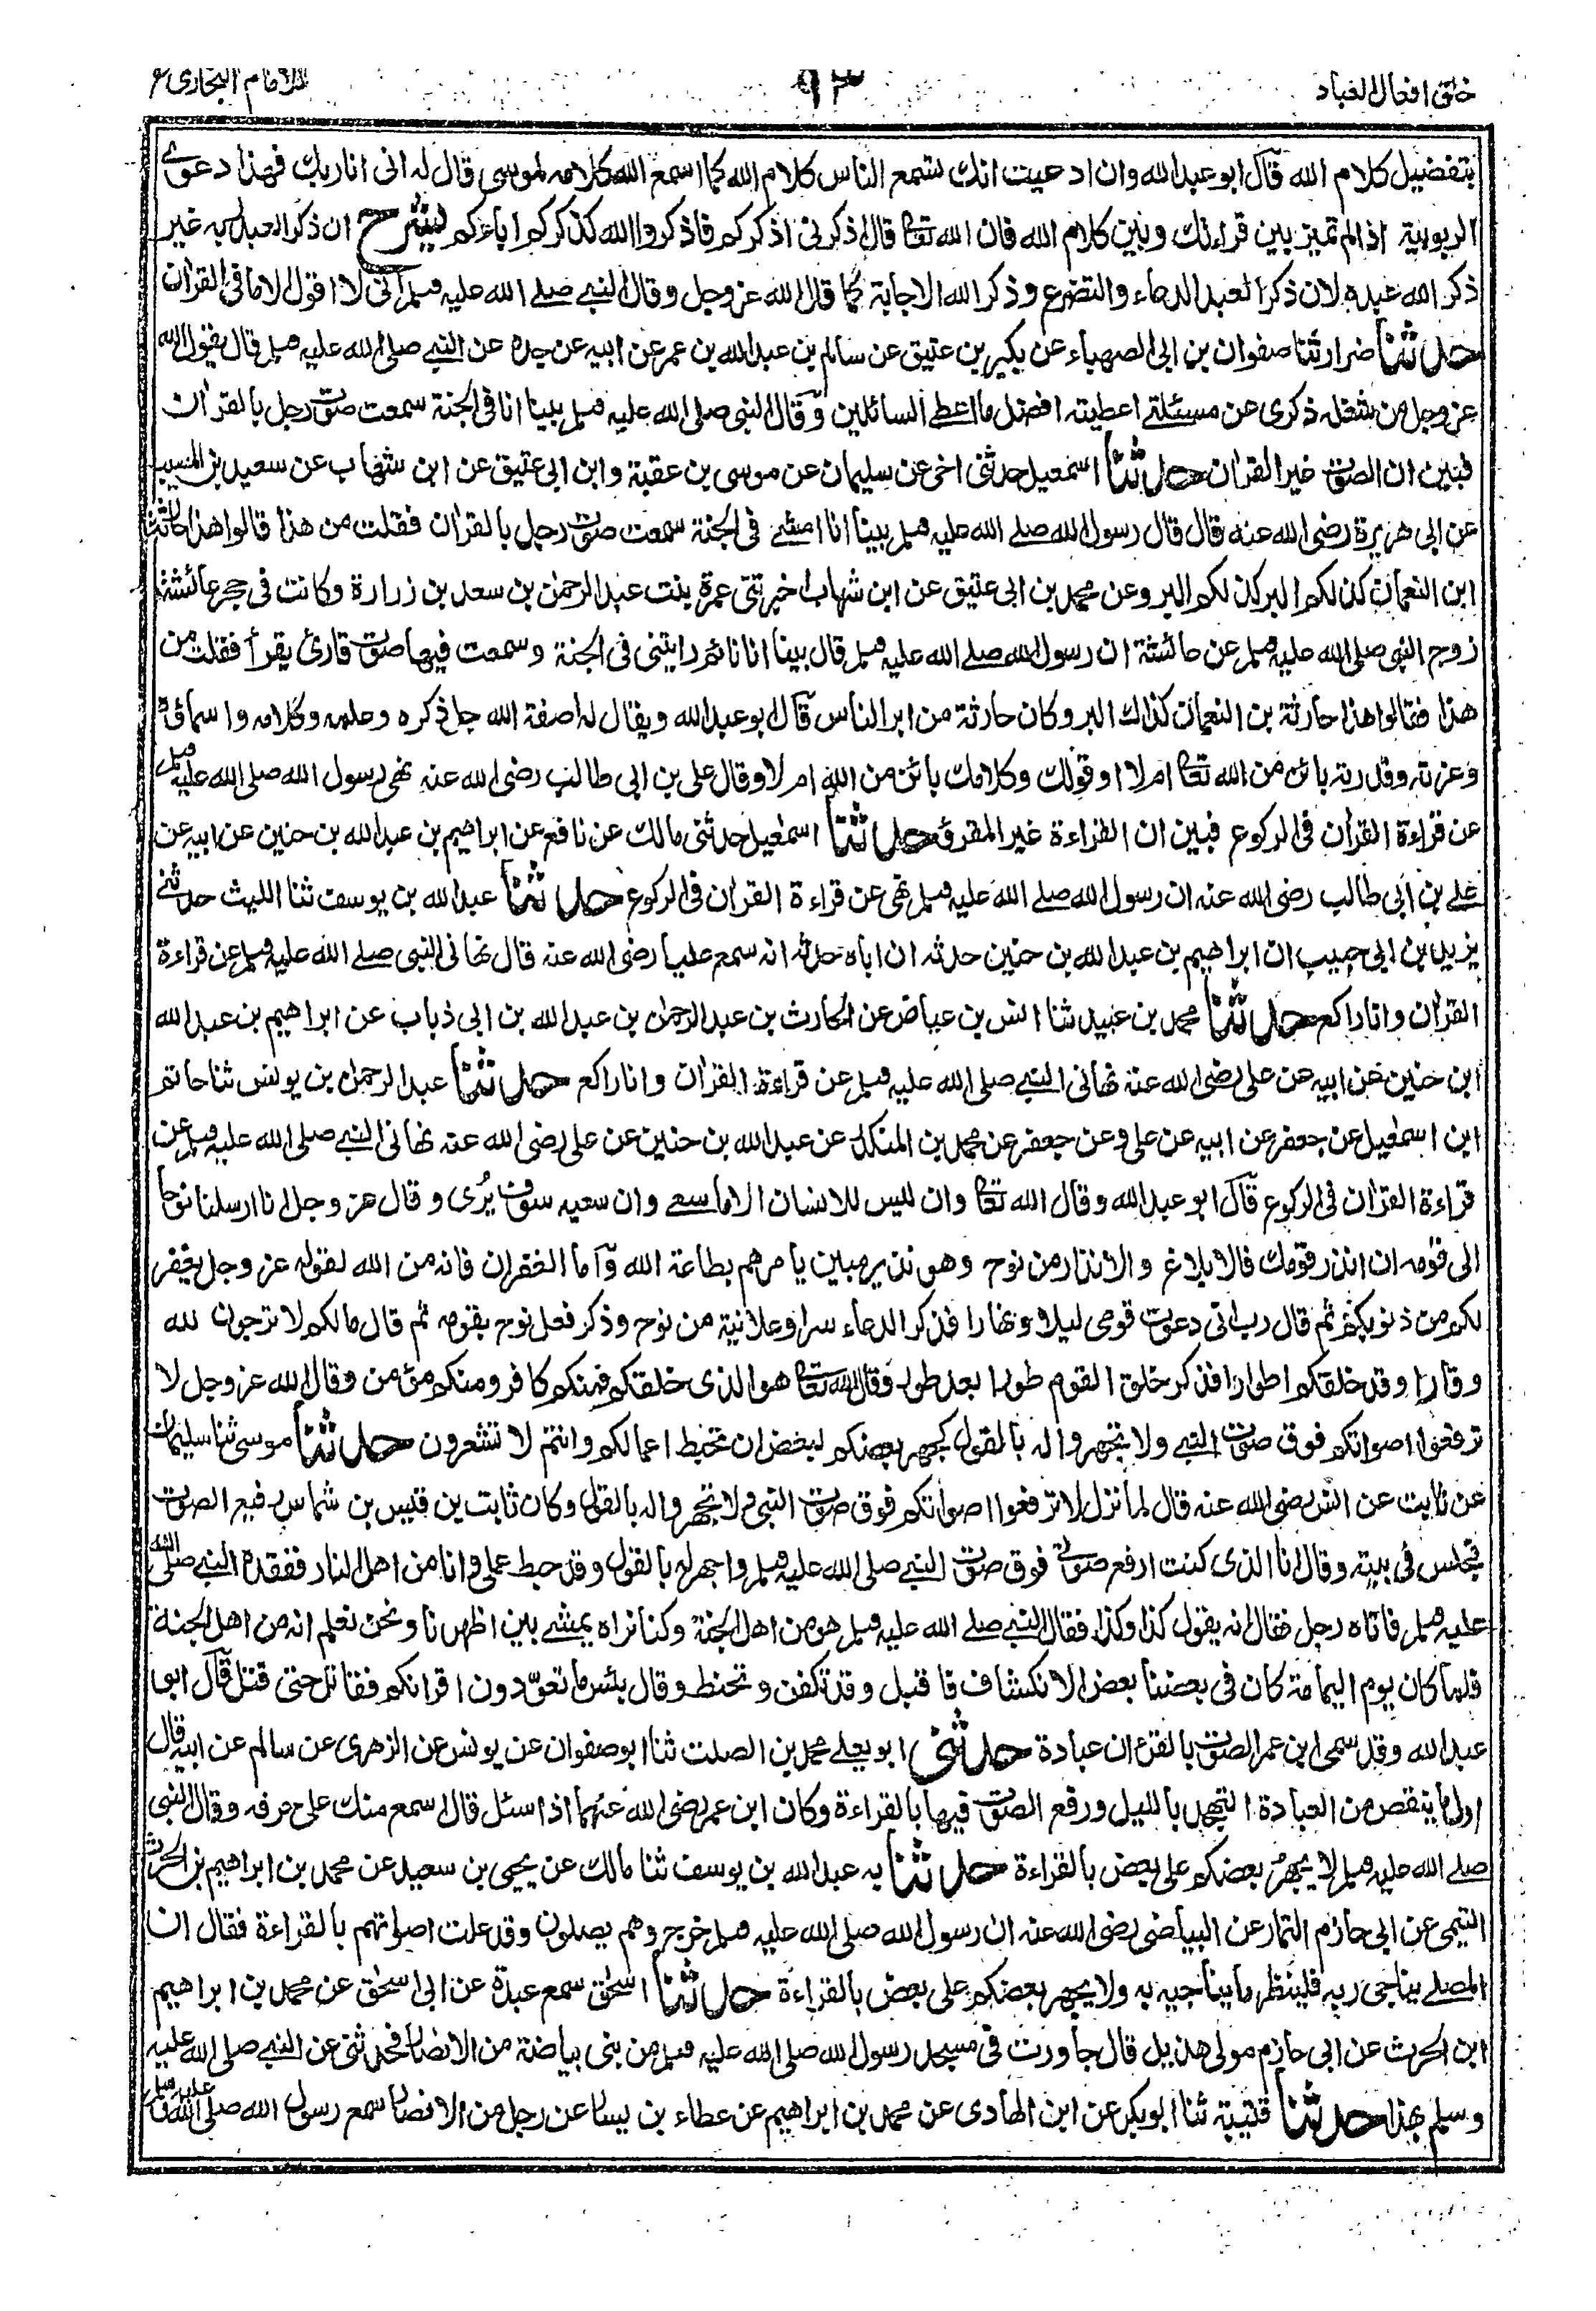 خلق افعال العباد
٩٣
للامام البخاری
بتفضيل كلام الله قال ابو عبد الله وان ادعيت انك تسمع الناس كلام الله كما اسمع الله كلامه لموسى قال له انى انا ربك فهذا دعوى
الربوبية اذا لم تميز بين قراءتك وبين كلام الله فان الله تعالى قال اذكرونى اذكركم فاذكروا الله كذكركم اباءكم ليشرح ان ذكر العبد ربه غير
ذكر الله عبده لان ذكر العبد الدعاء والتضرع وذكر الله الاجابة كما قال الله عز وجل وقال النبي صلى الله عليه وسلم انى لا اقول الا ما فى القران
حدثنا ضرار ثنا صفوان بن ابى الصهباء عن بكير بن عتيق عن سالم بن عبد الله بن عمر عن ابيه عن جده عن النبي صلى الله عليه وسلم قال يقول الله
عز وجل من شغله ذكرى عن مسئلتى اعطيته افضل ما اعطى السائلين وقال النبى صلى الله عليه وسلم بينا انا فى الجنة سمعت صوت رجل بالقران
فبين ان الصوت غير القران حدثنا اسمعيل حدثنى اخى عن سليمان عن موسى بن عقبة وابن ابى عتيق عن ابن شهاب عن سعيد بن المسيب
عن ابى هريرة رضى الله عنه قال قال رسول الله صلى الله عليه وسلم بينا انا امشى فى الجنة سمعت صوت رجل بالقران فقلت من هذا قالوا هذا حارثة
ابن النعمان كذلكم البر كذلكم البر وعن محمد بن ابى عتيق عن ابن شهاب اخبرتنى عمرة بنت عبد الرحمن بن سعد بن زرارة وكانت فى حجر عائشة
زوج النبى صلى الله عليه وسلم عن عائشة ان رسول الله صلى الله عليه وسلم قال بينا انا نائم رايتنى فى الجنة وسمعت فيها صوت قارئ يقرأ فقلت من
هذا فقالوا هذا حارثة بن النعمان كذاك البر وكان حارثة من ابر الناس قال ابو عبد الله ويقال له اصفة الله جل ذكره وعلمه وكلامه واسماؤه
وعزته وقدرته بائن من الله تعالى ام لا او قولك وكلامك بائن من الله ام لا وقال على بن ابى طالب رضى الله عنه نهى رسول الله صلى الله عليه وسلم
عن قراءة القران فى الركوع فبين ان القراءة غير المقروء حدثنا اسمعيل حدثنى مالك عن نافع عن ابراهيم بن عبد الله بن حنين عن ابيه عن
على بن ابى طالب رضى الله عنه ان رسول الله صلى الله عليه وسلم نهى عن قراءة القران فى الركوع حدثنا عبد الله بن يوسف ثنا الليث حدثنى
يزيد بن ابى حبيب ان ابراهيم بن عبد الله بن حنين حدثه ان اباه حدثه انه سمع عليا رضى الله عنه قال نهانى النبى صلى الله عليه وسلم عن قراءة
القران وانا راكع حدثنا محمد بن عبيد ثنا انس بن عياض عن الحارث بن عبد الرحمن بن عبد الله بن ابى ذباب عن ابراهيم بن عبد الله
ابن حنين عن ابيه عن على رضى الله عنه نهانى النبي صلى الله عليه وسلم عن قراءة القران وانا راكع حدثنا عبد الرحمن بن يونس ثنا حاتم
ابن اسمعيل عن جعفر عن ابيه عن على وعن جعفر عن محمد بن المنكدر عن عبد الله بن حنين عن على رضى الله عنه نهانى النبي صلى الله عليه وسلم عن
قراءة القران فى الركوع قال ابو عبد الله وقال الله تعالى وان ليس للانسان الا ما سعى وان سعيه سوف يُرى وقال عز وجل انا ارسلنا نوحا
الى قومه ان انذر قومك فالابلاغ والانذار من نوح وهو نذير مبين يامرهم بطاعة الله وأما الغفران فانه من الله لقوله عز وجل يغفر
لكم من ذنوبكم ثم قال رب انى دعوت قومى ليلا ونهارا فذكر الدعاء سرا وعلانية من نوح وذكر فعل نوح بقومه ثم قال مالكم لا ترجون لله
وقارا وقد خلقكم اطوارا فذكر خلق القوم طورا بعد طور وقال الله تعالى هو الذى خلقكم فمنكم كافر ومنكم مؤمن وقال الله عز وجل لا
ترفعوا اصواتكم فوق صوت النبي ولا تجهروا له بالقول كجهر بعضكم لبعض ان تحبط اعمالكم وانتم لا تشعرون حدثنا موسى ثنا سليمان
عن ثابت عن انس رضى الله عنه قال لما نزل لا ترفعوا اصواتكم فوق صوت النبى ولا تجهروا له بالقول وكان ثابت بن قيس بن شماس رفيع الصوت
فجلس فى بيته وقال انا الذى كنت ارفع صوتى فوق صوت النبي صلى الله عليه وسلم واجهر له بالقول وقد حبط عملى وانا من اهل النار ففقده النبي صلى الله
عليه وسلم فاتاه رجل فقال انه يقول كذا وكذا فقال النبي صلى الله عليه وسلم هو من اهل الجنة وكنا نراه يمشى بين اظهرنا ونحن نعلم انه من اهل الجنة
فلما كان يوم اليمامة كان فى بعضنا بعض الانكشاف فاقبل وقد تكفن وتحنط وقال بئس ما تعوّدون اقرانكم فقاتل حتى قتل قال ابو
عبد الله وقد سمى ابن عمر الصوت بالقران عبادة حدثنى ابو يعلى محمد بن الصلت ثنا ابو صفوان عن يونس عن الزهرى عن سالم عن ابيه قال
اول ما ينقص من العبادة التهجد بالليل ورفع الصوت فيها بالقراءة وكان ابن عمر رضى الله عنهما اذا سئل قال اسمع منك على حرفه وقال النبى
صلى الله عليه وسلم لا يجهر بعضكم على بعض بالقراءة حدثنا به عبد الله بن يوسف ثنا مالك عن يحيى بن سعيد عن محمد بن ابراهيم بن الحرث
التيمى عن ابى حازم التمار عن البياضى رضى الله عنه ان رسول الله صلى الله عليه وسلم خرج وهم يصلون وقد علت اصواتهم بالقراءة فقال ان
المصلى يناجى ربه فلينظر ما يناجيه به ولا يجهر بعضكم على بعض بالقراءة حدثنا اسحق سمع عبدة عن ابى اسحق عن محمد بن ابراهيم
ابن الحرث عن ابى حازم مولى هذيل قال جاورت فى مسجد رسول الله صلى الله عليه وسلم من بنى بياضة من الانصار فحدثنى عن النبي صلى الله عليه
وسلم بهذا حدثنا قتيبة ثنا ابو بكر عن ابن الهادى عن محمد بن ابراهيم عن عطاء بن يسار عن رجل من الانصار سمع رسول الله صلى الله عليه وسلم